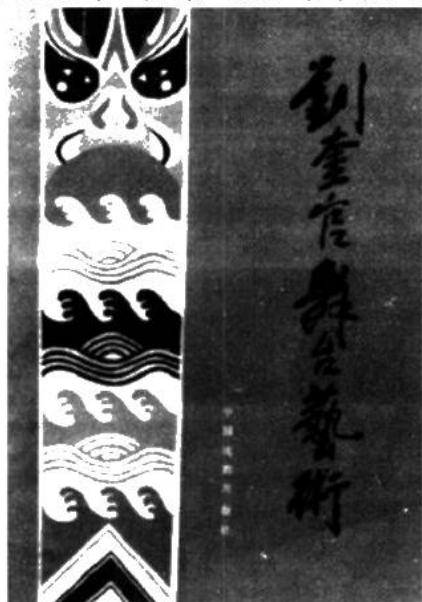 劉奎官舞台藝術
中国戏剧出版社